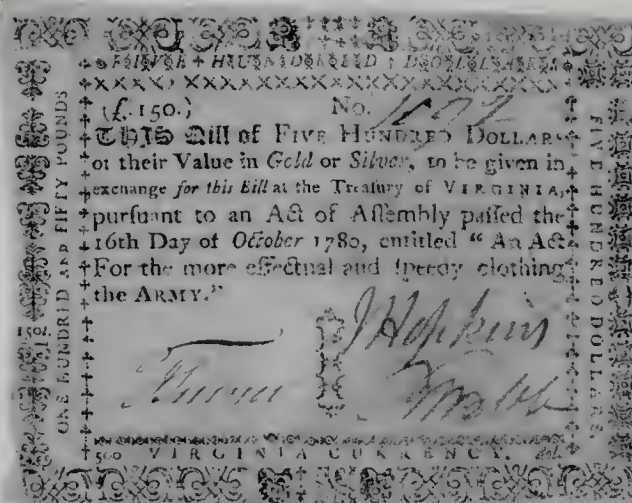 FIVE HUNDRED DOLLARS
(£.150.) No.
THIS Bill of FIVE HUNDRED DOLLARS
or their Value in Gold or Silver, to be given in
exchange for this Bill at the Treaſury of VIRGINIA,
purſuant to an Act of Aſſembly paſſed the
16th Day of October 1780, entitled “ An Act
For the more effectual and ſpeedy clothing
the ARMY.”
J Hopkins
500 VIRGINIA CURRENCY. Dol.
ONE HUNDRED AND FIFTY POUNDS
150l.
FIVE HUNDRED DOLLARS.